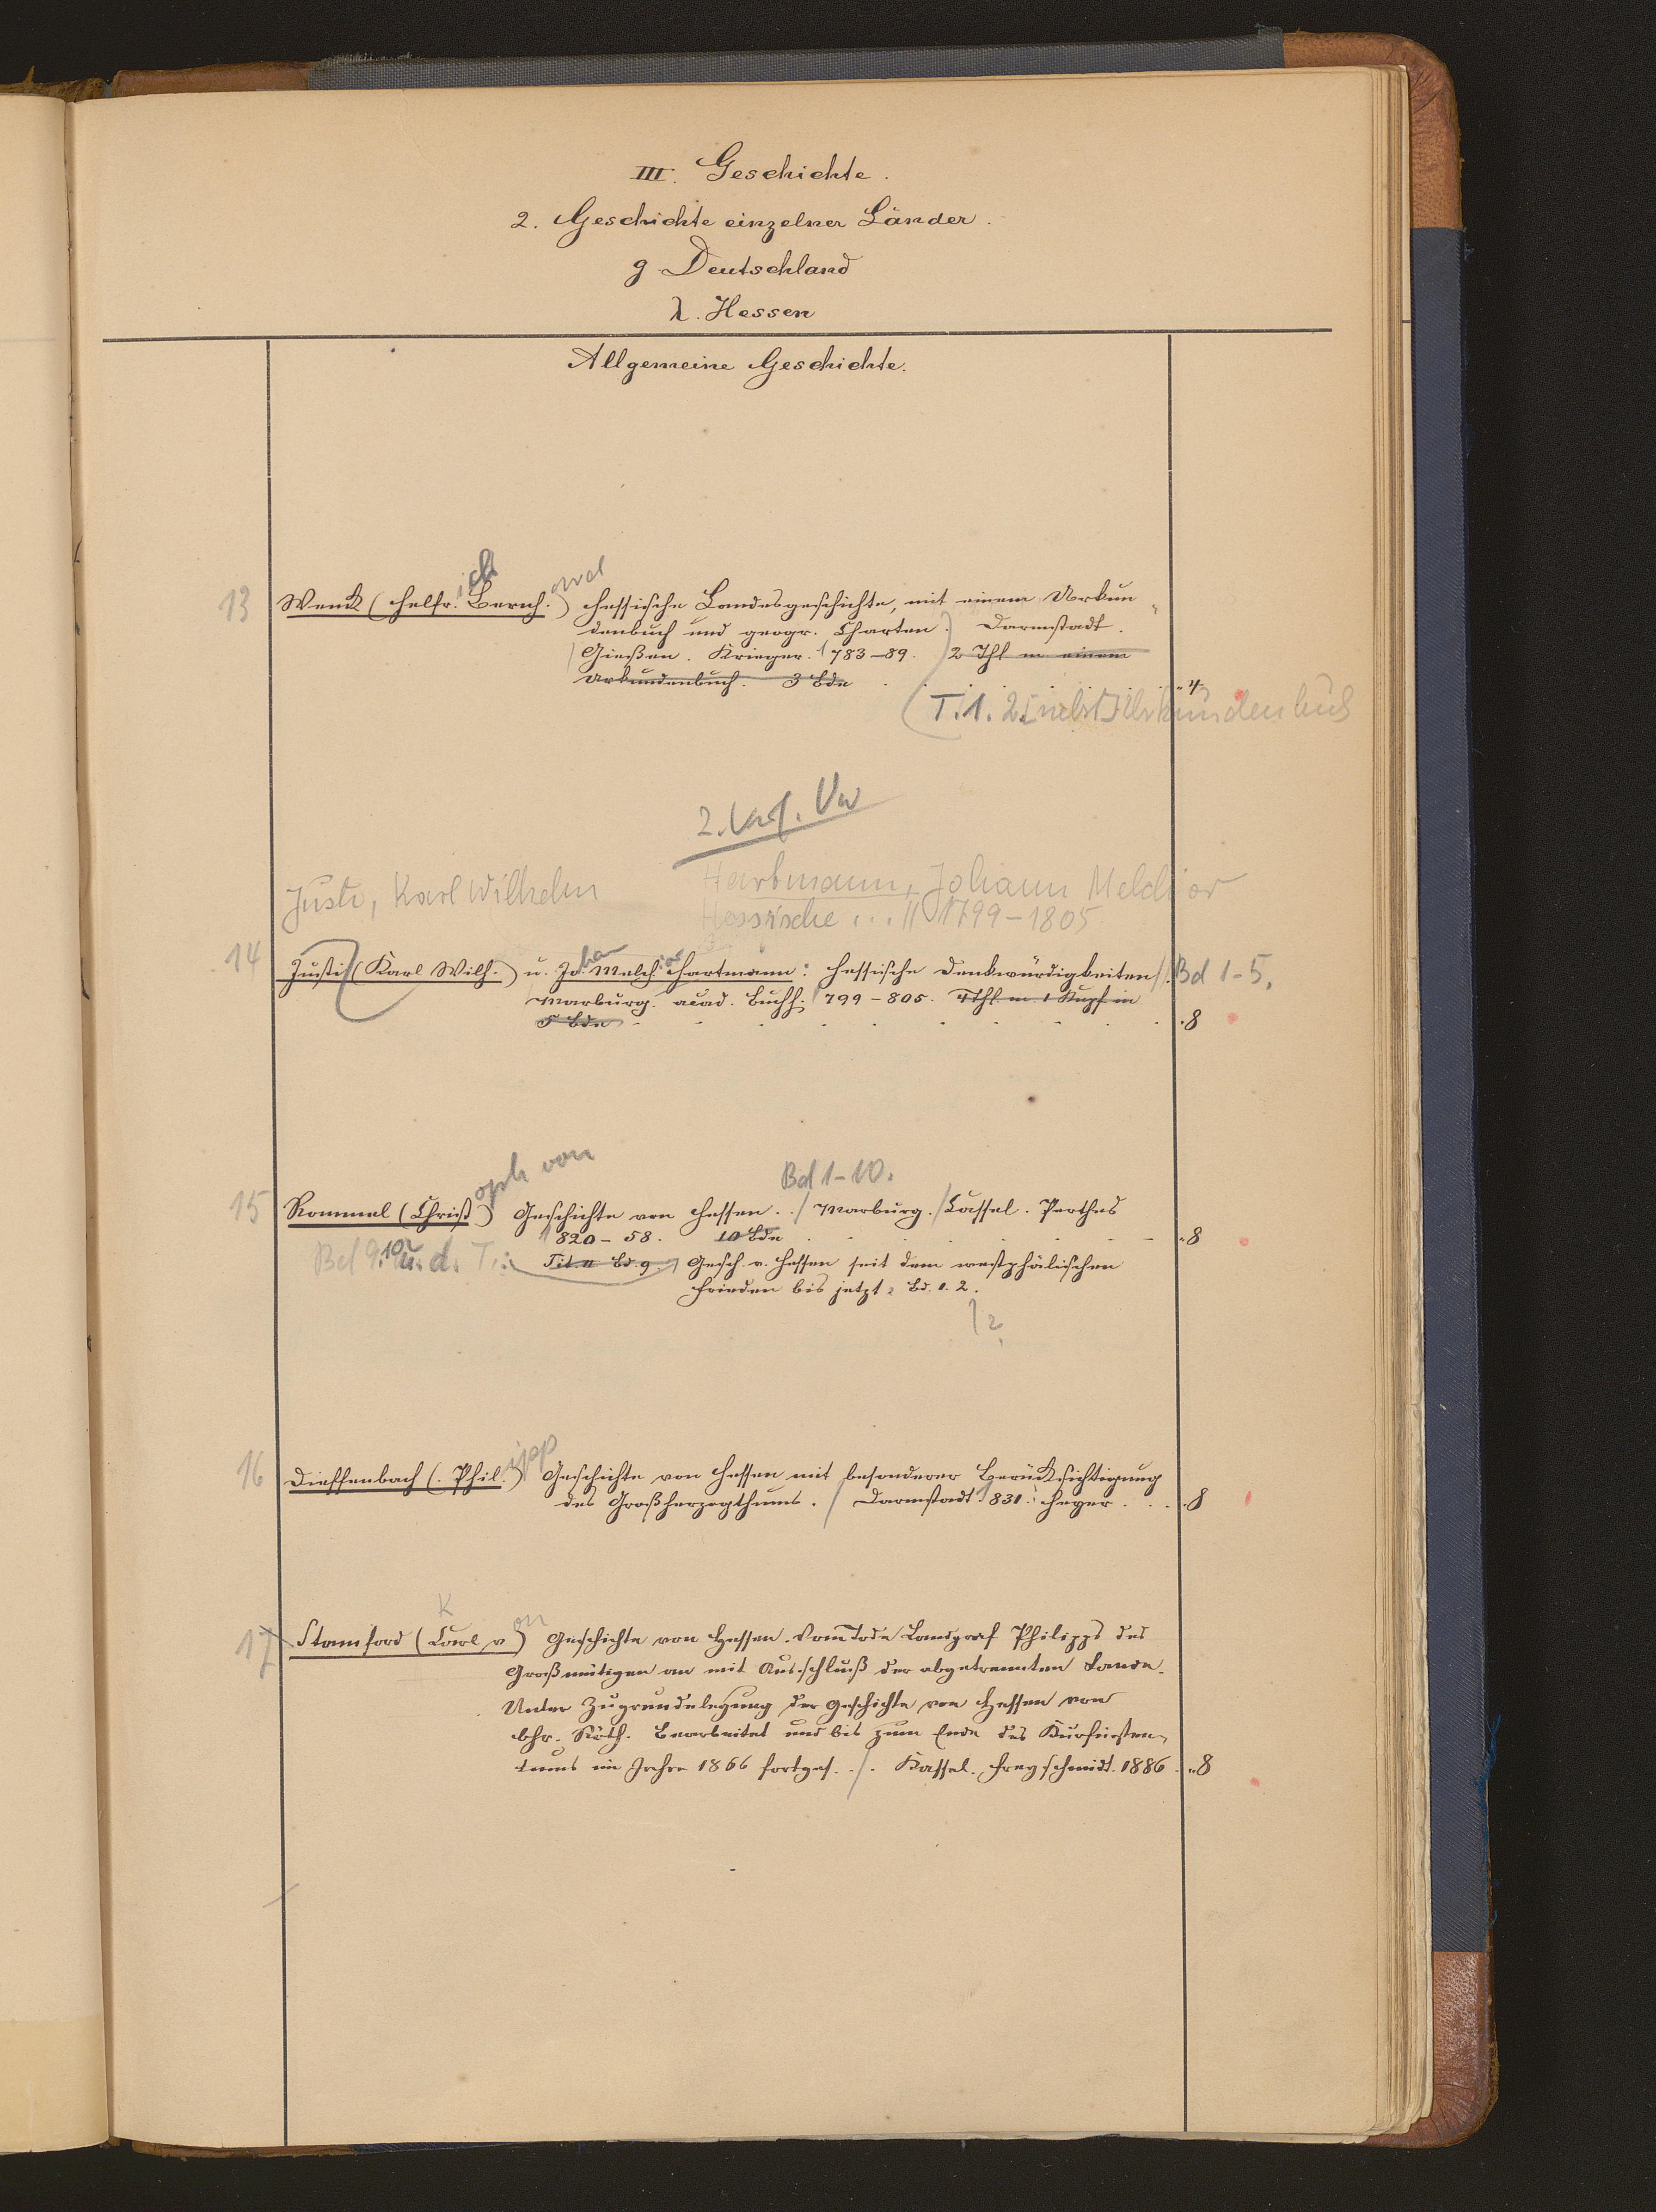 III. Geschichte.
2. Geschichte einzelner Länder.
g. Deutschland
λ. Hessen
Allgemeine Geschichte.
ich
ard
13 Wenck (Helfr. Bernh.) Hessische Landesgeschichte, mit einem Urkun-
denbuch und geogr. Charten. Darmstadt.
Gießen. Krieger. 1783-89. 2 Thl m einem
Urkundenbuch. 3 Bde 4
T. 1. 2. [nebst] Urkundenbuch
2. Verf. Vw
Justi, Karl Wilhelm Hartmann, Johann Melchior
Hessische ... // 1799-1805
14 Justi (Karl Wilh.) u. Johan Melchior Hartmann: Hessische Denkwürdigkeiten //. Bd 1-5.
Marburg. acad. Buchh. 1799-805. 4 Thl. m. 1 Kupf in
5 Bde 8
oph von Bd 1-10.
15 Rommel (Christ.) Geschichte von Hessen. / Marburg. / Cassel. Perthes
1820-58. 10 Bde 8
Bd 9. 10 u. d. T.: Tit. II Bd. 9. Gesch. v. Hessen seit dem westphälischen
Frieden bis jetzt. Bd. 1. 2.
1 2.
ipp
16 Dieffenbach (Phil.) Geschichte von Hessen mit besonderer Berücksichtigung
des Großherzogthums. / Darmstadt 1831. Heyer. 8
K on
17 Stamford (Carl v.) Geschichte von Hessen. Vom Tode Landgraf Philipps des
Großmütigen an mit Ausschluß der abgetrennten Lande.
Unter Zugrundelegung der Geschichte von Hessen von
Chr. Röth. Bearbeitet und bis zum Ende des Kurfürsten-
tums im Jahre 1866 fortges. /. Kassel. Freyschmidt. 1886. 8